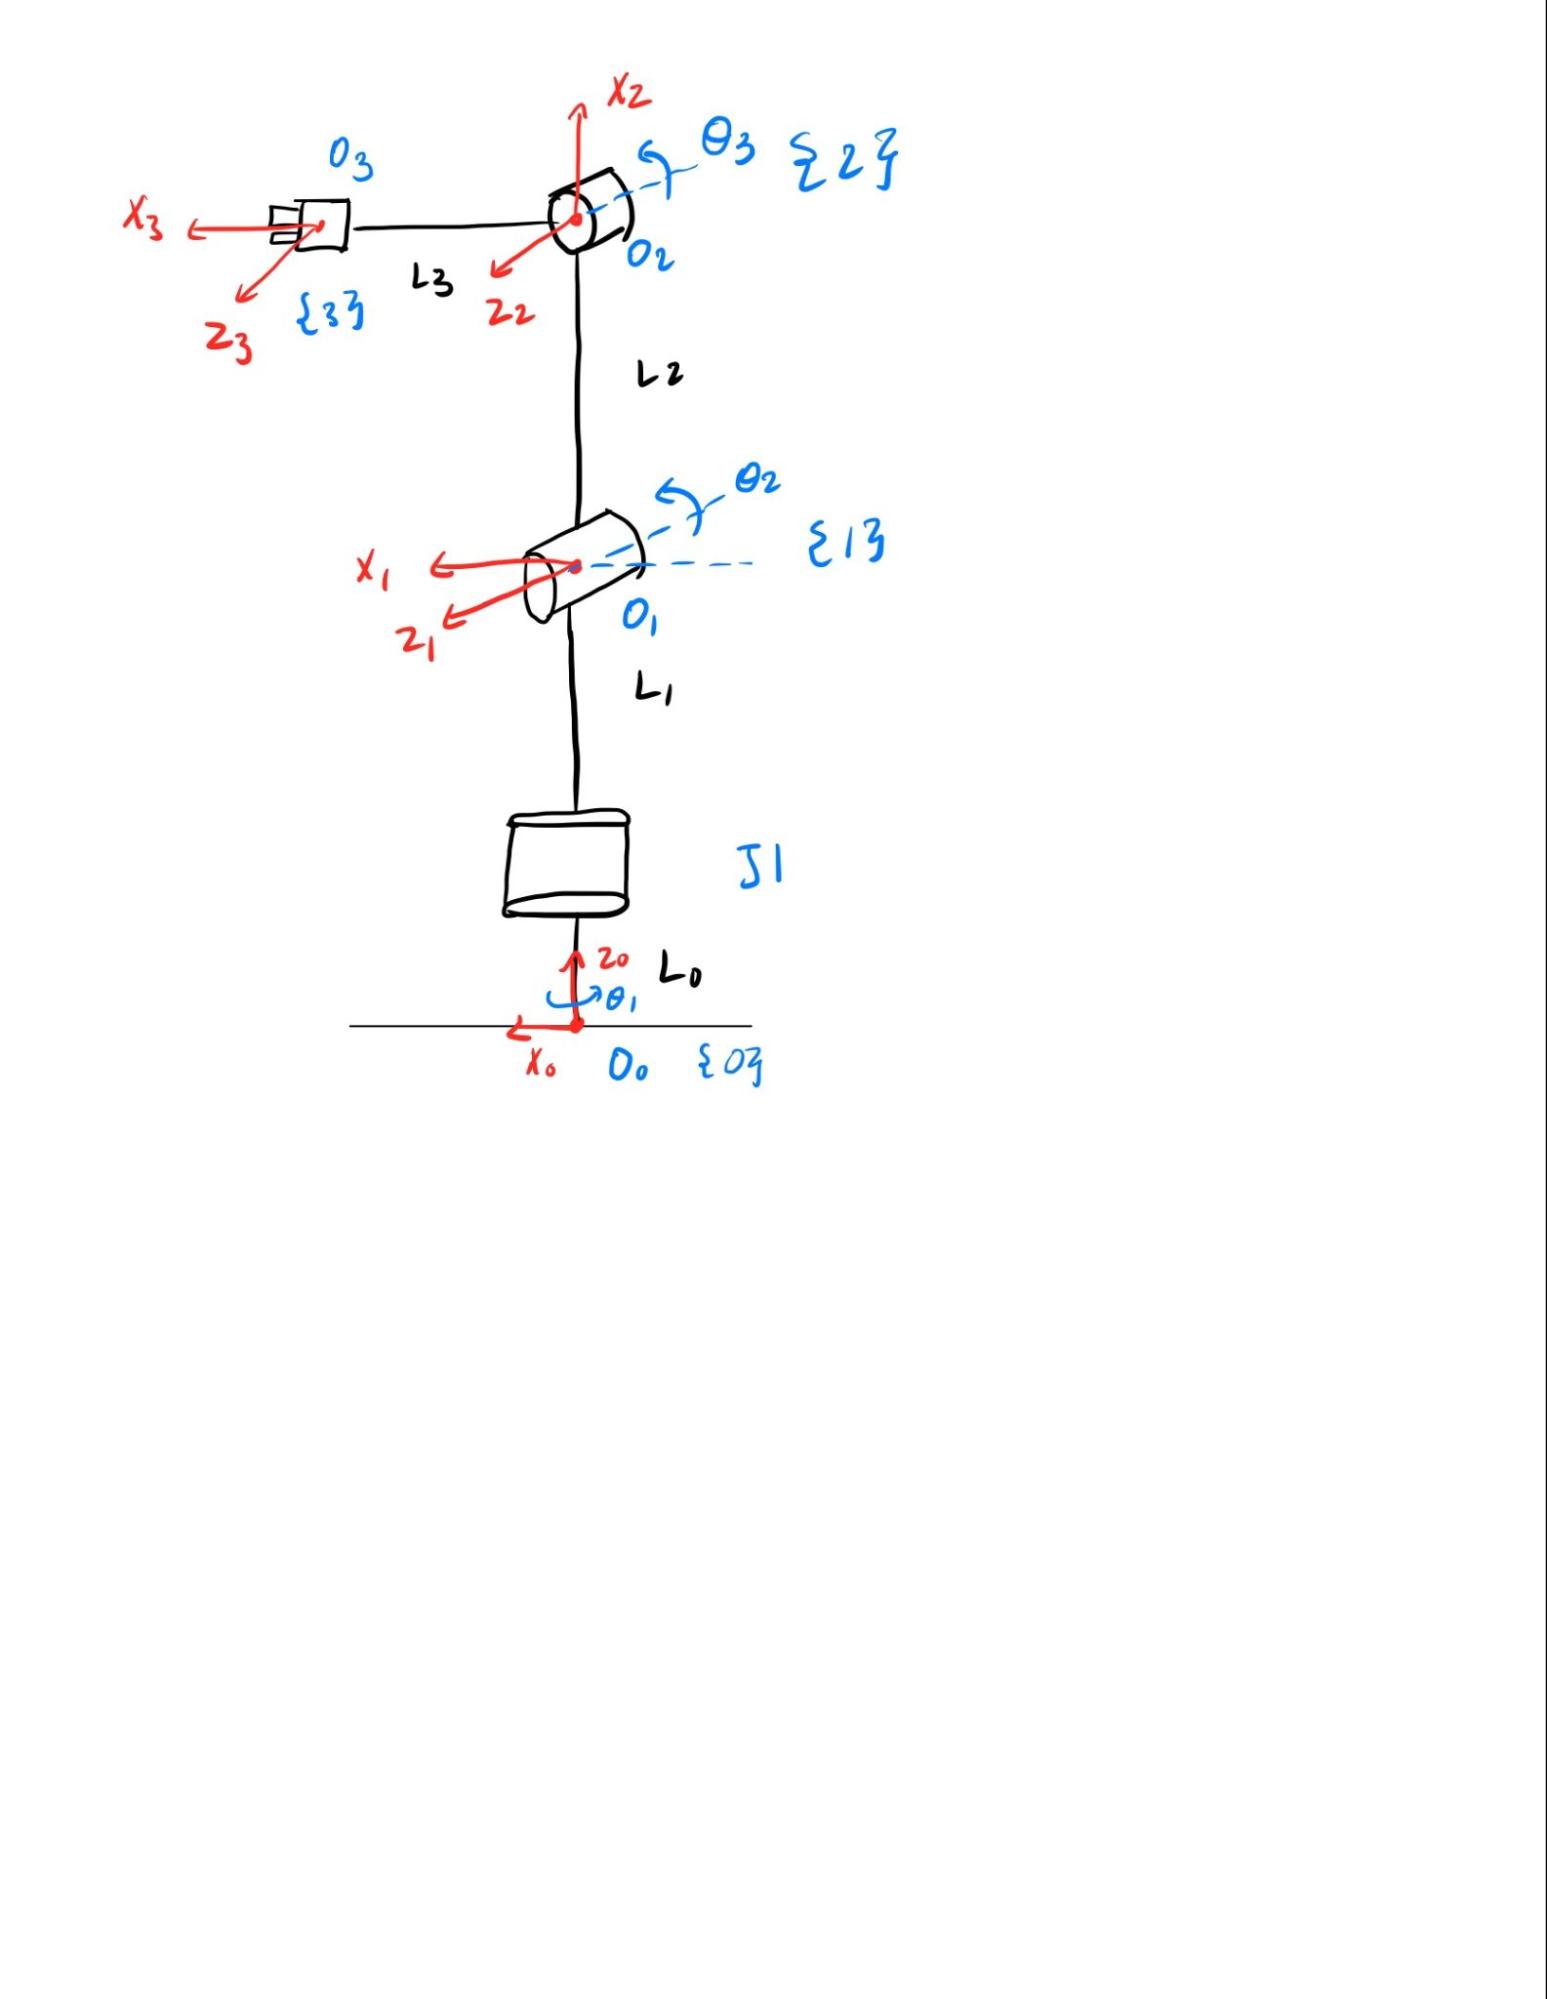 X2
θ3 {2}
O3
X3
O2
L3
Z2
{3}
Z3
L2
θ2
{1}
X1
O1
Z1
L1
J1
Z0
L0
θ1
X0
O0 {0}